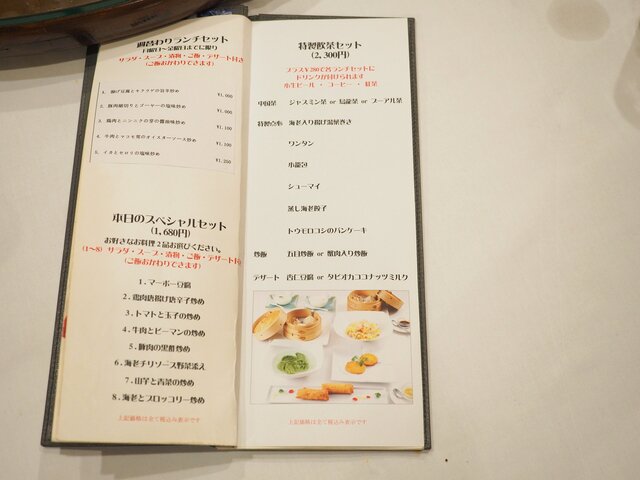 週替わりランチセット
月曜日～金曜日までに限り
サラダ・スープ・漬物・ご飯・デザート付き
(ご飯おかわりできます)
1. 揚げ豆腐とキクラゲの旨辛炒め ¥1,000
2. 豚肉細切りとゴーヤーの塩味炒め ¥1,000
3. 鶏肉とニンニクの芽の醤油味炒め ¥1,100
4. 牛肉とマコモ茸のオイスターソース炒め ¥1,100
5. イカとセロリの塩味炒め ¥1,250
本日のスペシャルセット
(1,680円)
お好きなお料理2品お選びください。
(1～8) サラダ・スープ・漬物・ご飯・デザート付
(ご飯おかわりできます)
1.マーボー豆腐
2.鶏肉唐揚げ唐辛子炒め
3.トマトと玉子の炒め
4.牛肉とピーマンの炒め
5.豚肉の黒酢炒め
6.海老チリソース野菜添え
7.山芋と青菜の炒め
8.海老とブロッコリー炒め
上記価格は全て税込み表示です
特製飲茶セット
(2,300円)
プラス¥280で各ランチセットに
ドリンクが付けられます
小生ビール・コーヒー・紅茶
中国茶 ジャスミン茶 or 烏龍茶 or プーアル茶
特製点心 海老入り揚げ湯葉巻き
ワンタン
小籠包
シューマイ
蒸し海老餃子
トウモロコシのパンケーキ
炒飯 五目炒飯 or 蟹肉入り炒飯
デザート 杏仁豆腐 or タピオカココナッツミルク
上記価格は全て税込み表示です